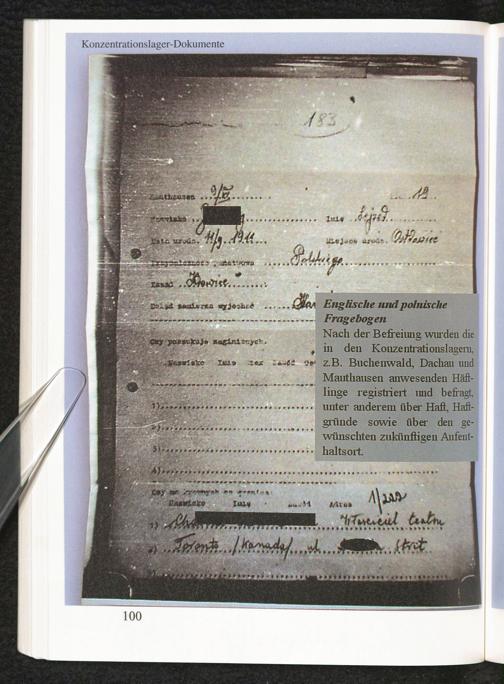 Konzentrationslager-Dokumente
183
Mauthausen 9/VI 19
Nazwisko Imię Lejzod
Data urodz. 11/9. 1911 Miejsce urodz. Ostrowiec
Przynależność państwowa Polskiego
Zawód
Dokąd zamierza wyjechać
Czy poszukuje zaginionych.
Nazwisko Imię Zawód
1)
2)
3)
4)
Czy ma krewnych za granicą:
Nazwisko Imię Zawód Adres
1) Właściciel teatru
2) Toronto /Kanada/ ul
Englische und polnische
Fragebogen
Nach der Befreiung wurden die
in den Konzentrationslagern,
z.B. Buchenwald, Dachau und
Mauthausen anwesenden Häft-
linge registriert und befragt,
unter anderem über Haft, Haft-
gründe sowie über den ge-
wünschten zukünftigen Aufent-
haltsort.
100